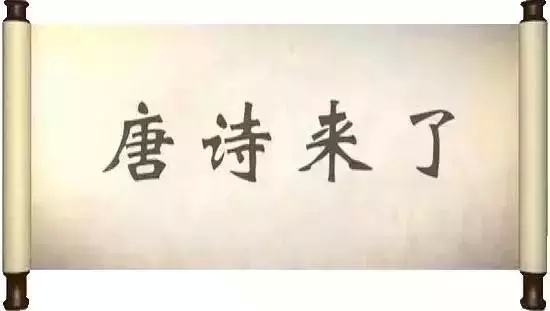 唐诗来了